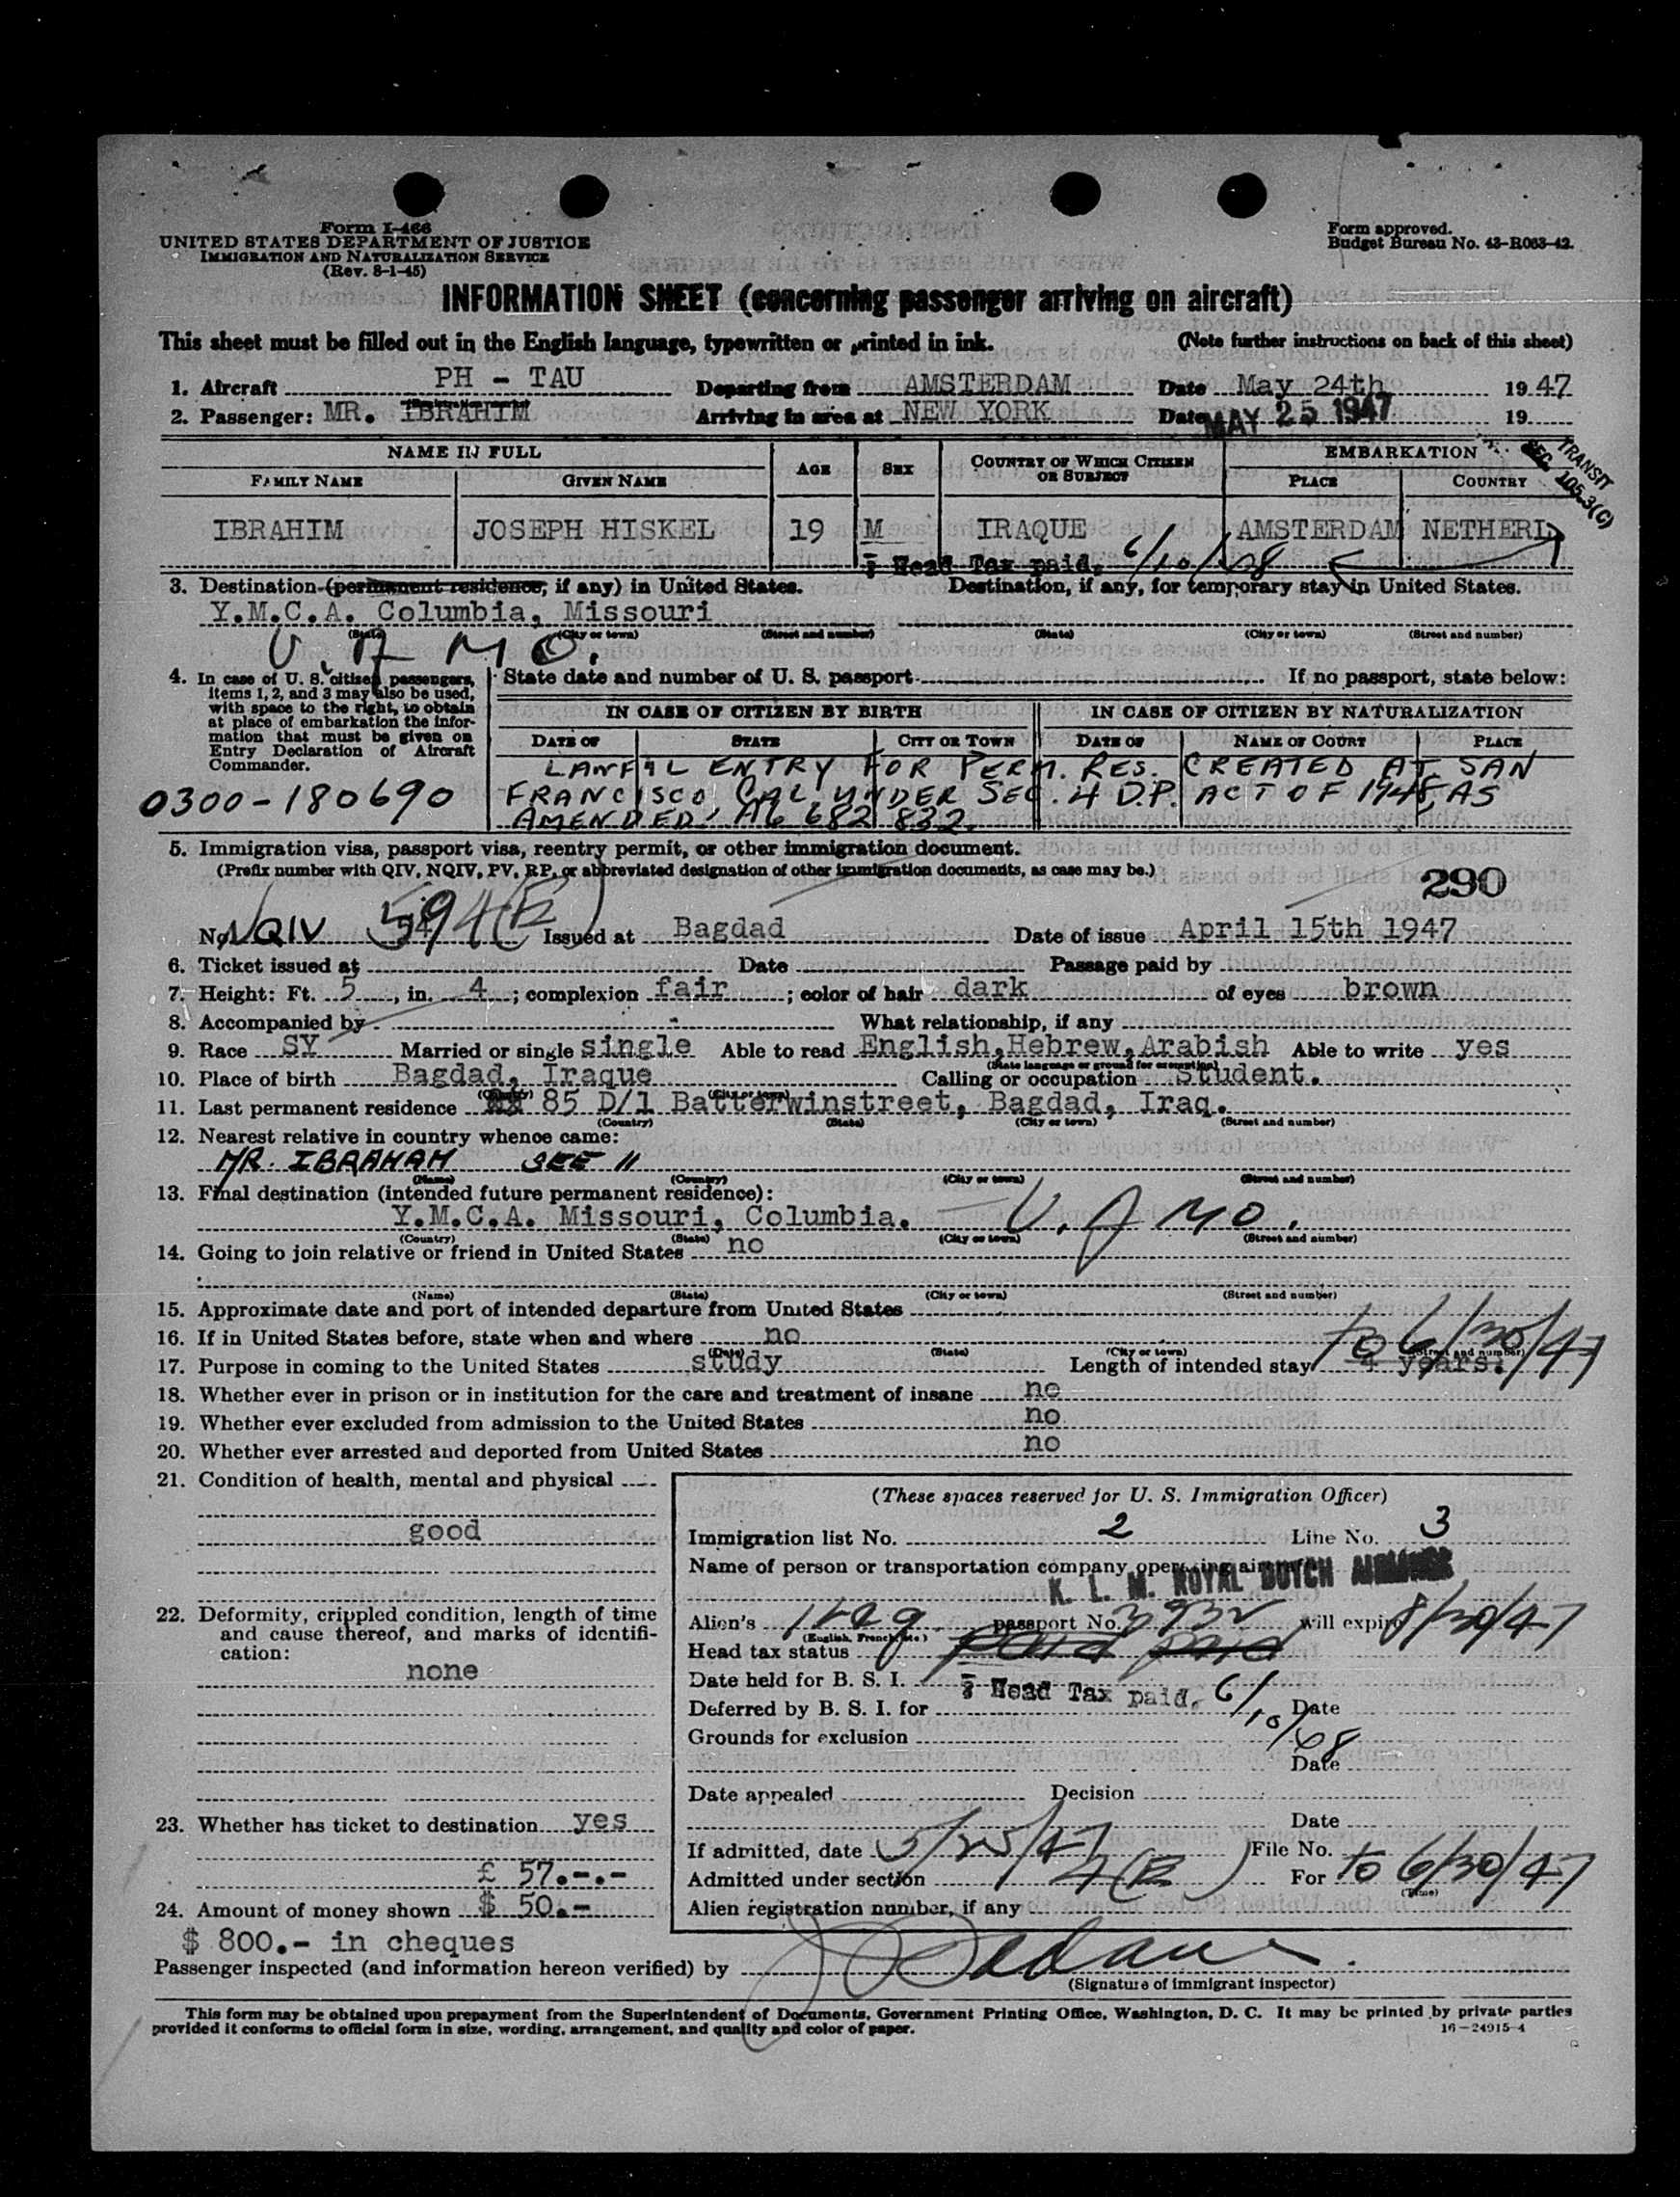 Form I-466
UNITED STATES DEPARTMENT OF JUSTICE
IMMIGRATION AND NATURALIZATION SERVICE
(Rev. 8-1-45)
Form approved.
Budget Bureau No. 43-R063-42.
INFORMATION SHEET (concerning passenger arriving on aircraft)
This sheet must be filled out in the English language, typewritten or printed in ink. (Note further instructions on back of this sheet)
1. Aircraft PH - TAU Departing from AMSTERDAM Date May 24th 1947
2. Passenger: MR. IBRAHIM Arriving in area at NEW YORK Date MAY 25 1947 19
TRANSIT
SEC. 105.3(C)
NAME IN FULL AGE SEX COUNTRY OF WHICH CITIZEN OR SUBJECT EMBARKATION
FAMILY NAME GIVEN NAME PLACE COUNTRY
IBRAHIM JOSEPH HISKEL 19 M IRAQUE AMSTERDAM NETHERL
Head Tax paid. 6/10/48
3. Destination (permanent residence, if any) in United States. Destination, if any, for temporary stay in United States.
Y.M.C.A. Columbia, Missouri
(State) (City or town) (Street and number) (State) (City or town) (Street and number)
U. of MO.
4. In case of U. S. citizen passengers, items 1, 2, and 3 may also be used, with space to the right, to obtain at place of embarkation the information that must be given on Entry Declaration of Aircraft Commander.
State date and number of U. S. passport If no passport, state below:
IN CASE OF CITIZEN BY BIRTH IN CASE OF CITIZEN BY NATURALIZATION
DATE OF STATE CITY OR TOWN DATE OF NAME OF COURT PLACE
LAWFUL ENTRY FOR PERM. RES. CREATED AT SAN
FRANCISCO CAL UNDER SEC. 4 D.P. ACT OF 1948, AS
AMENDED, A6 682 832.
0300-180690
5. Immigration visa, passport visa, reentry permit, or other immigration document.
(Prefix number with QIV, NQIV, PV, RP, or abbreviated designation of other immigration documents, as case may be.)
290
No. NQIV 594 Issued at Bagdad Date of issue April 15th 1947
6. Ticket issued at Date Passage paid by
7. Height: Ft. 5, in. 4; complexion fair; color of hair dark of eyes brown
8. Accompanied by - What relationship, if any
9. Race SY Married or single single Able to read English,Hebrew,Arabish Able to write yes
(State language or ground for exemption)
10. Place of birth Bagdad, Iraque Calling or occupation Student.
(Country) (City or town)
11. Last permanent residence 85 D/1 Batterwinstreet, Bagdad, Iraq.
(Country) (State) (City or town) (Street and number)
12. Nearest relative in country whence came:
MR. IBRAHAM SEE 11
(Name) (Country) (City or town) (Street and number)
13. Final destination (intended future permanent residence):
Y.M.C.A. Missouri, Columbia. - U. of MO.
(Country) (State) (City or town) (Street and number)
14. Going to join relative or friend in United States no
(Name) (State) (City or town) (Street and number)
15. Approximate date and port of intended departure from United States
16. If in United States before, state when and where no
(Date) (State) (City or town) (Street and number)
to 6/30/47
17. Purpose in coming to the United States study Length of intended stay 4 years.
18. Whether ever in prison or in institution for the care and treatment of insane no
19. Whether ever excluded from admission to the United States no
20. Whether ever arrested and deported from United States no
21. Condition of health, mental and physical
good
22. Deformity, crippled condition, length of time and cause thereof, and marks of identification:
none
23. Whether has ticket to destination yes
£ 57.-.-
24. Amount of money shown $ 50.-
$ 800.- in cheques
(These spaces reserved for U. S. Immigration Officer)
Immigration list No. 2 Line No. 3
Name of person or transportation company operating aircraft
K. L. M. ROYAL DUTCH AIRLINES
Alien's Iraq passport No. 3932 will expire 8/30/47
(English, French, etc.)
Head tax status paid paid
Date held for B. S. I.
Head Tax paid. 6/10/48
Deferred by B. S. I. for Date
Grounds for exclusion
Date
Date appealed Decision
Date
If admitted, date 5/25/47 File No.
Admitted under section 4(E) For to 6/30/47
(Time)
Alien registration number, if any
Passenger inspected (and information hereon verified) by
(Signature of immigrant inspector)
This form may be obtained upon prepayment from the Superintendent of Documents, Government Printing Office, Washington, D. C. It may be printed by private parties
provided it conforms to official form in size, wording, arrangement, and quality and color of paper.
16-24915-4